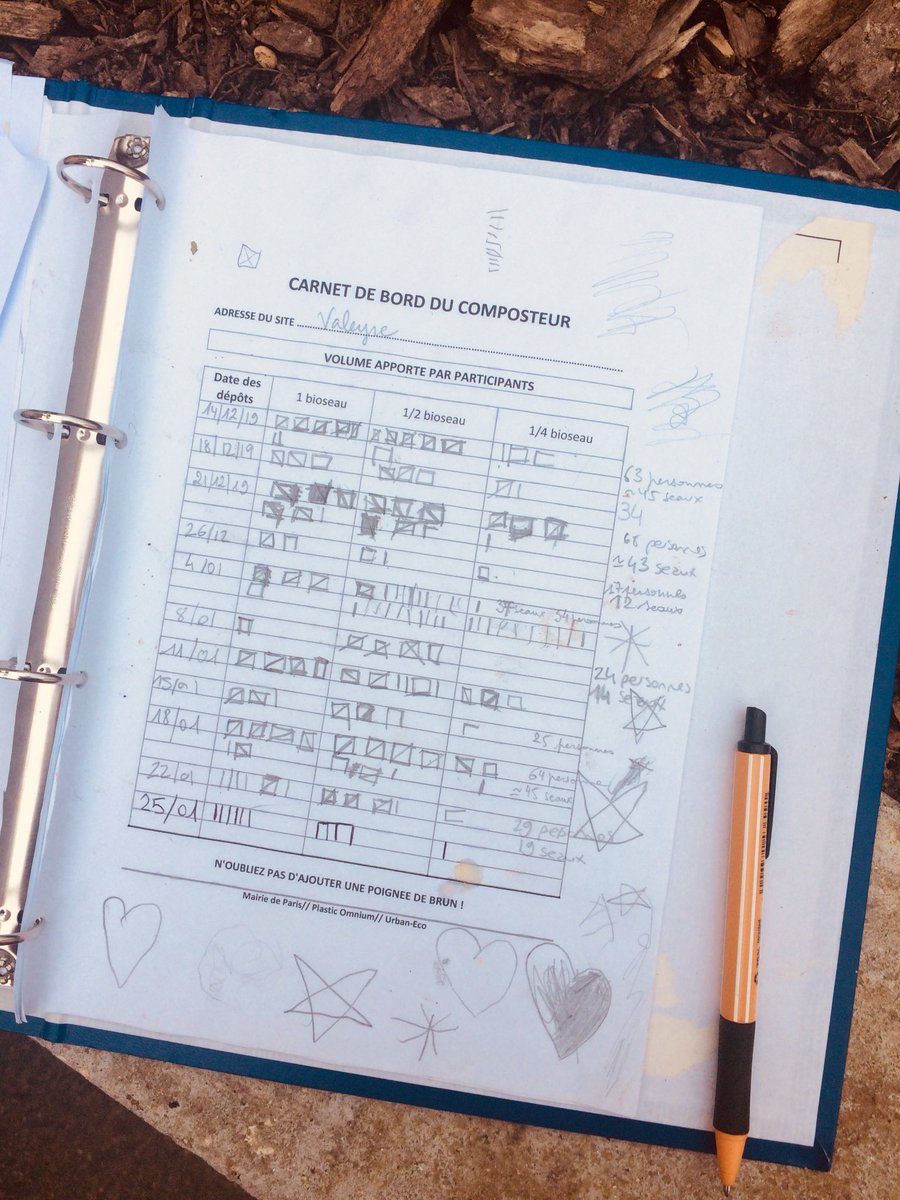 CARNET DE BORD DU COMPOSTEUR
ADRESSE DU SITE Valeyre
VOLUME APPORTE PAR PARTICIPANTS
Date des dépôts 1 bioseau 1/2 bioseau 1/4 bioseau
14/12/19
18/12/19 63 personnes
≈ 45 seaux
21/12/19 34
68 personnes
26/12 ≈ 43 seaux
17 personnes
4/01 12 seaux
37 seaux 54 personnes
8/01
11/01 24 personnes
14 seaux
15/01
25 personnes
18/01
64 personnes
22/01 ≈ 45 seaux
25/01 29
19 seaux
N'OUBLIEZ PAS D'AJOUTER UNE POIGNEE DE BRUN !
Mairie de Paris// Plastic Omnium// Urban-Eco